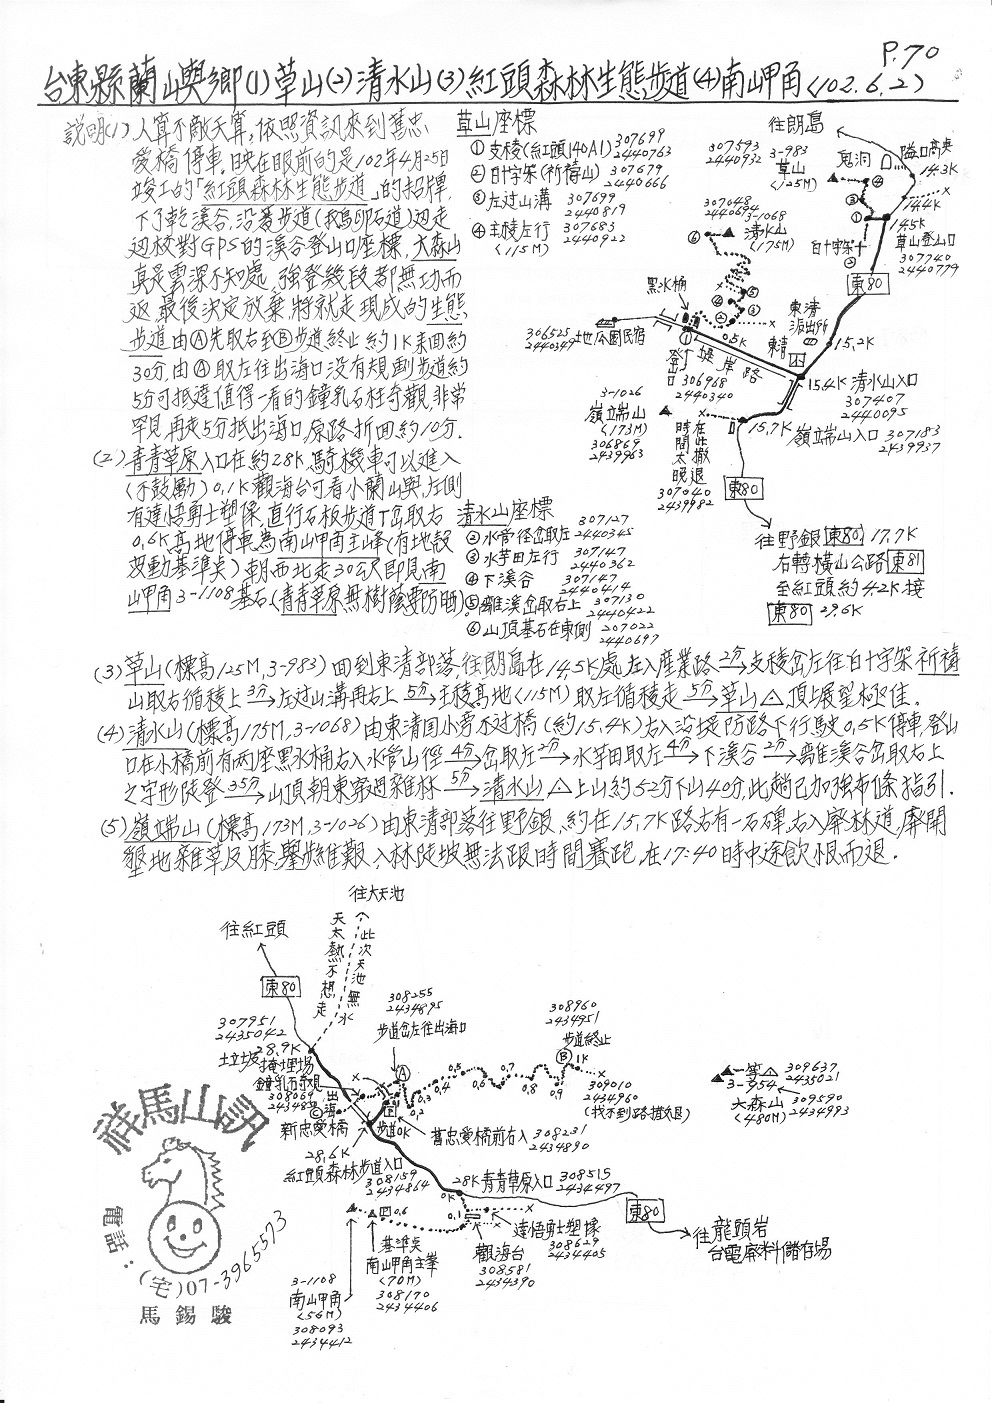 P.70
台東縣蘭嶼鄉(1)草山(2)清水山(3)紅頭森林生態步道(4)南岬角(102.6.2)
說明(1)人算不敵天算,依照資訊來到舊忠
愛橋停車,映在眼前的是102年4月25日
竣工的「紅頭森林生態步道」的招牌,
下了乾溪谷,沿著步道(鵝卵石道)邊走
邊核對GPS的溪谷登山口座標,大森山
真是雲深不知處,強登幾段都無功而
返,最後決定放棄,將就走現成的生態
步道由Ⓐ先取右到Ⓑ步道終止約1K來回約
30分,由Ⓐ取左往出海口沒有規劃步道約
5分可抵達值得一看的鐘乳石柱奇觀,非常
罕見,再走5分抵出海口,原路折回約10分.
(2)青青草原入口在約28K,騎機車可以進入
(不鼓勵)0.1K觀海台可看小蘭嶼,左側
有達悟勇士塑像,直行石板步道T岔取右
0.6K高地停車為南岬角主峰(有地殼
變動基準點)朝西北走30公尺即見南
岬角3-1108基石(青青草原無樹蔭要防晒)
草山座標
①支稜(紅頭140A1) 307699 2440763
②白十字架(祈禱山) 307679 2440666
③左过山溝 307699 2440819
④主稜左行 307683 2440922
(115M)
清水山座標
②水管徑岔取左 307127 2440345
③水芋田左行 307147 2440362
④下溪谷 307147 2440414
⑤離溪岔取右上 307130 2440422
⑥山頂基石在東側 207022 2440697
往朗島
307593 2440932
3-983
草山
(125M)
鬼洞
14.3K
14.4K
14.5K
草山登山口
307740
2440779
白十字架
東80
307048 2440694
3-1068
清水山
(175M)
黑水桶
306525 2440349
地瓜園民宿
0.5K
堤岸路
登山口
306968
2440340
東清派出所
東清
15.2K
15.4K 清水山入口
307407
2440095
3-1026
嶺端山
(173M)
306869
2439963
在此撤退
時間太晚
307040
2439982
15.7K
嶺端山入口 307183 2439937
東80
往野銀 東80 17.7K
右轉橫山公路 東81
至紅頭約4.2K接
東80 29.6K
(3)草山(標高125M,3-983)回到東清部落,往朗島在14.5K處左入產業路2分→支稜岔左往白十字架祈禱
山取右循稜上3分→左过山溝再右上5分→主稜高地(115M)取左循稜走5分→草山△頂上展望極佳.
(4)清水山(標高175M,3-1068)由東清国小旁不过橋(約15.4K)右入沿堤防路下行駛0.5K停車,登山
口在小橋前有兩座黑水桶右入水管山徑4分→岔取左2分→水芋田取左4分→下溪谷2分→離溪谷岔取右上
之字形陡登35分→山頂朝東穿過雜林5分→清水山△上山約52分下山40分,此趟已加強布條指引.
(5)嶺端山(標高173M,3-1026)由東清部落往野銀,約在15.7K路右有一石碑,右入廢林道,廢開
墾地雜草及膝,舉步維艱,入林陡坡無法跟時間賽跑,在17:40時中途飲恨而退.
往大天池
往紅頭
天太熱不想走
此次天池無水
東80
307951
2435042
28.9K
垃圾掩埋場
鐘乳石奇觀
308255
2434895
步道岔左往出海口
308960
2434951
步道終止
Ⓑ 1K
309010
2434960
(找不到路撤退)
一等△
3-954
309637
2435021
大森山
(480M)
309590
2434993
Ⓐ
0.2
0.3
0.4
0.5
0.6
0.7
0.8
0.9
Ⓒ出海口
步道0K
新忠愛橋
舊忠愛橋前右入 308231 2434890
28.6K
紅頭森林步道入口
308159
2434864
28K青青草原入口 308515 2434497
0K
0.1
0.6
東80
往龍頭岩
台電廢料儲存場
達悟勇士塑像
308629
2434405
觀海台
308581
2434390
基準点
南岬角主峯
(70M)
308170
2434406
3-1108
南岬角
(56M)
308093
2434412
祥馬山訊
電話:
(宅)07-3965573
馬錫駿